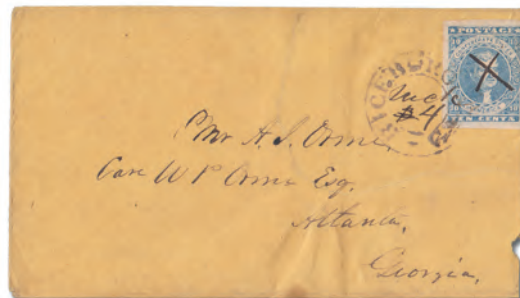 POSTAGE
TEN CENTS
RICEBORO
Mr A. J. Orme,
Care W P Orme Esq.
Atlanta,
Georgia,